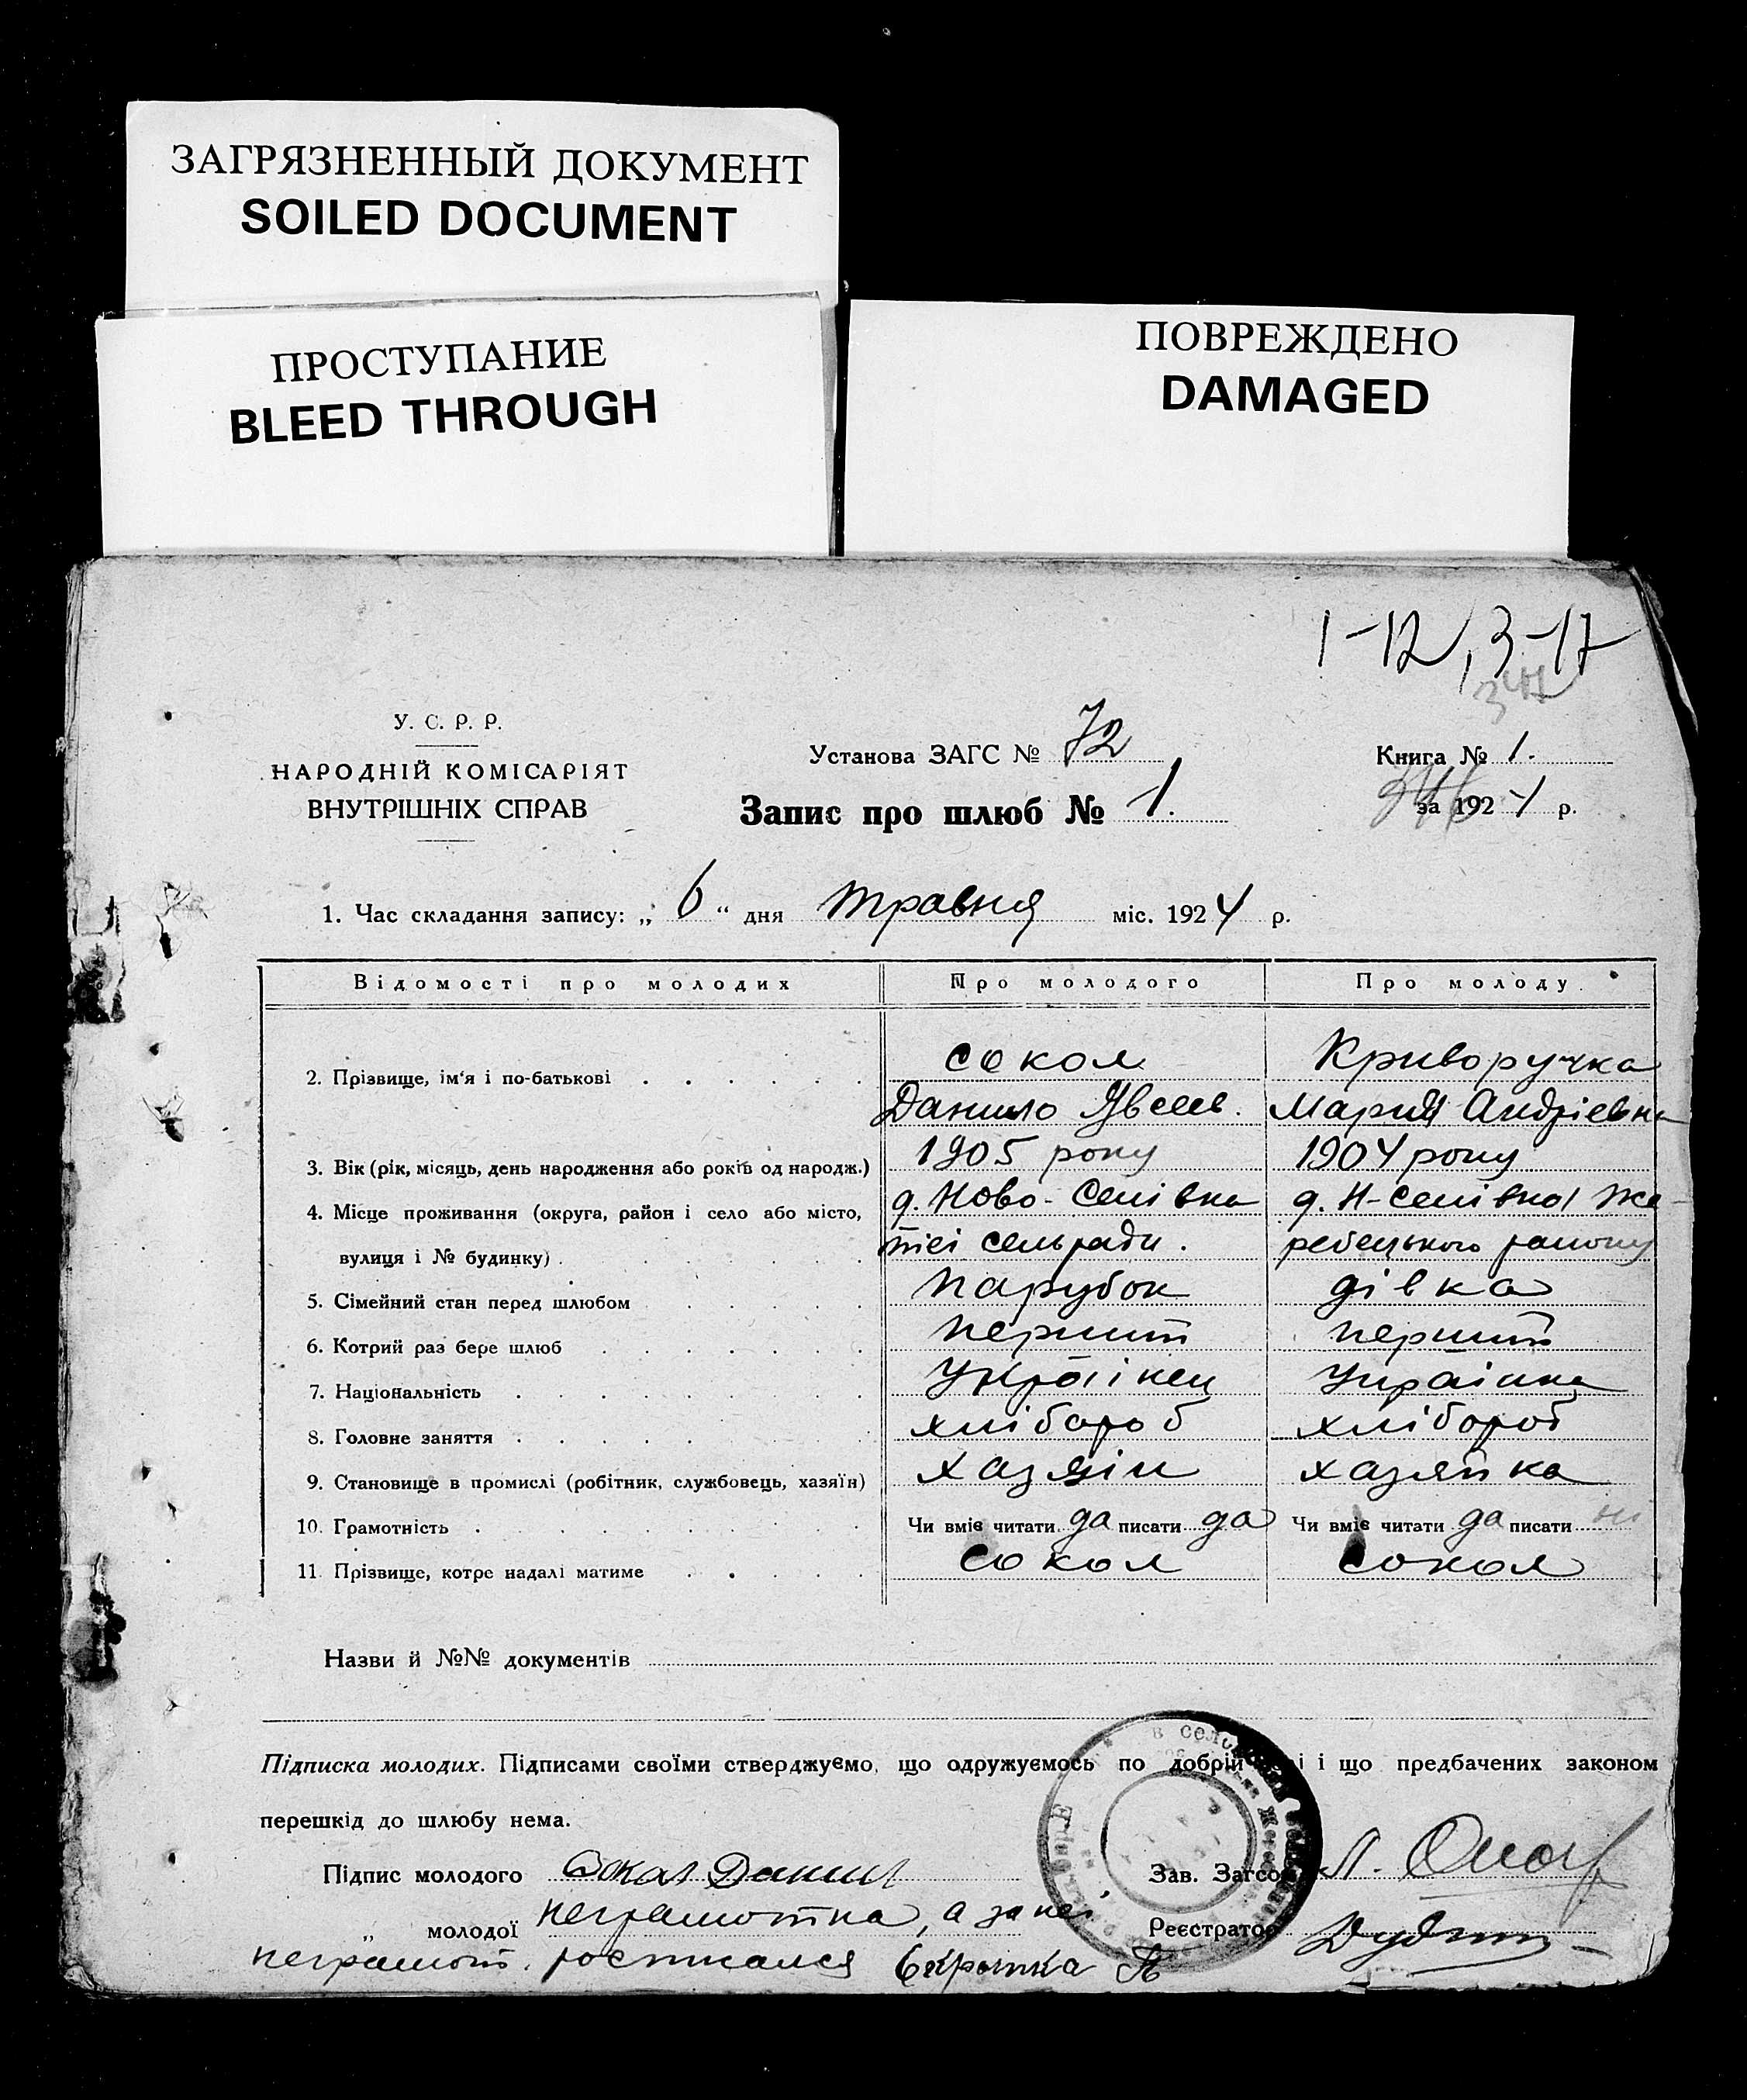 ЗАГРЯЗНЕННЫЙ ДОКУМЕНТ
SOILED DOCUMENT
ПРОСТУПАНИЕ
BLEED THROUGH
ПОВРЕЖДЕНО
DAMAGED
1-12, 3-17
У. С. Р. Р.
НАРОДНІЙ КОМІСАРІЯТ
ВНУТРІШНІХ СПРАВ
Установа ЗАГС № 72
Запис про шлюб № 1.
Книга № 1.
за 1924 р.
1. Час складання запису: „ 6 “ дня травня міс. 1924 р.
Відомості про молодих Про молодого Про молоду
2. Прізвище, ім'я і по-батькові . . . . . . Сокол Криворучка
Данило Явсеев. Мария Андріевна
3. Вік (рік, місяць, день народження або років од народж.) 1905 року 1904 року
4. Місце проживання (округа, район і село або місто, д. Ново-Селівка д. Н-Селівка Же-
вулиця і № будинку) . тіеі сельради. ребецького району
5. Сімейний стан перед шлюбом Парубок дівка
6. Котрий раз бере шлюб перший перший
7. Національність Україінец Украінка
8. Головне заняття хлібороб хлібороб
9. Становище в промислі (робітник, службовець, хазяїн) хазяін хазяйка
10. Грамотність Чи вміє читати да писати да Чи вміє читати да писати ні
11. Прізвище, котре надалі матиме Сокол Сокол
Назви й №№ документів
Підписка молодих. Підписами своїми стверджуємо, що одружуємось по добрій і що предбачених законом
перешкід до шлюбу нема.
Підпис молодого Сокол Данил Зав. Загсо
„ молодої неграмотна, а за неі Реєстратор
неграмот. росписался